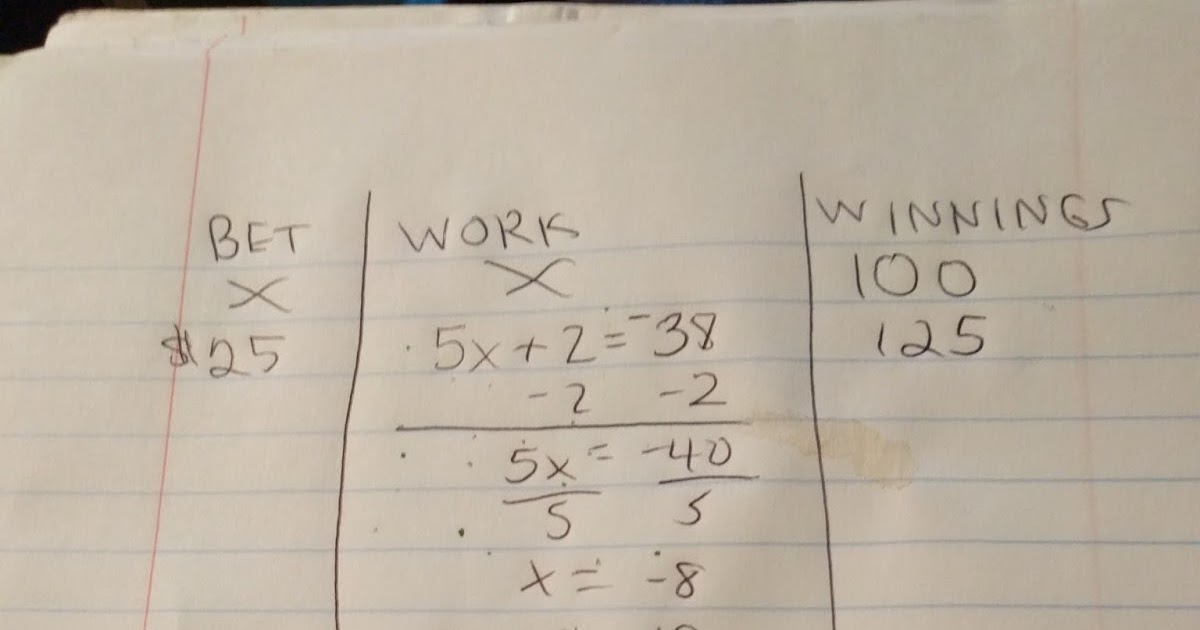 BET WORK WINNINGS
X X 100
$25 5x+2=-38 125
-2 -2
5x = -40
5 5
x = -8